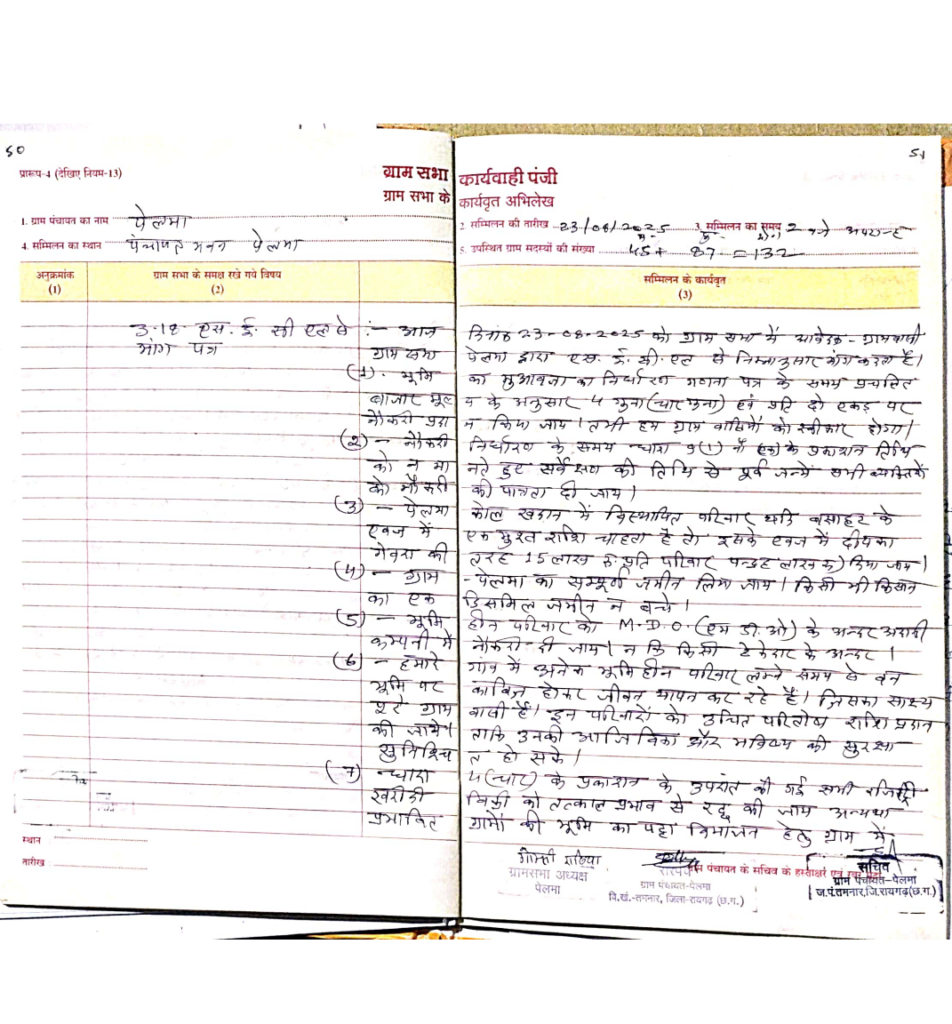 50
51
प्रारूप-4 (देखिए नियम-13)
ग्राम सभा कार्यवाही पंजी
ग्राम सभा के कार्यवृत अभिलेख
1. ग्राम पंचायत का नाम पेलमा
2 सम्मिलन की तारीख 23/08/2025 3. सम्मिलन का समय 2 बजे
4. सम्मिलन का स्थान पंचायत भवन पेलमा
5. उपस्थित ग्राम सदस्यों की संख्या 45+ 87 = 132
अनुक्रमांक (1)
ग्राम सभा के समक्ष रखे गये विषय (2)
सम्मिलन के कार्यवृत (3)
3.18 एस. ई. सी एल से :- आज दिनांक 23-08-2025 को ग्राम सभा में आवेदक - ग्रामवासी
मांग पत्र ग्राम सभा पेलमा द्वारा एस. ई. सी. एल से निम्नानुसार मांग करता है।
(1). भूमि का मुआवजा का निर्धारण गणना पत्र के समय प्रचलित
बाजार मूल्य के अनुसार 4 गुना (चार गुना) एवं प्रति दो एकड़ पर
नौकरी प्रदान किया जाय। तभी हम ग्राम वासियों को स्वीकार होगा।
(2) - नौकरी निर्धारण के समय धारा 9(1) के प्रकाशन तिथि
को न मानते हुए सर्वेक्षण की तिथि से पूर्व जन्में सभी व्यक्तियों
को नौकरी की पात्रता दी जाय।
(3) - पेलमा कोल खदान में विस्थापित परिवार यदि बसाहट के
एवज में एक मुस्त राशि चाहता है तो इसके एवज में दीपका
गेवरा की तरह 15 लाख रु. प्रति परिवार पन्द्रह लाख रु) दिया जाय।
(4) - ग्राम - पेलमा का सम्पूर्ण जमीन लिया जाय। किसी भी किसान
का एक डिसमिल जमीन न बचे।
(5) - भूमि हीन परिवार को M.D.O. (एम डी. ओ) के अन्दर
कम्पनी में नौकरी दी जाय। न कि किसी ठेकेदार के अन्दर।
(6) - हमारे गांव में अनेक भूमिहीन परिवार लम्बे समय से वन
भूमि पर काबिज होकर जीवन यापन कर रहे हैं। जिसका साक्ष्य
पूरे ग्राम वासी हैं। इन परिवारों को उचित परितोष राशि प्रदान
की जाये। ताकि उनकी आजिविका और भविष्य की सुरक्षा
सुनिश्चित हो सके।
(7) - धारा 4 (चार) के प्रकाशन के उपरांत की गई सभी रजिस्ट्री
खरीदी बिक्री को तत्काल प्रभाव से रद्द की जाय अन्यथा
प्रभावित ग्रामों की भूमि का पट्टा विभाजन हेतु ग्राम में
स्थान
तारीख
ग्रामसभा अध्यक्ष
पेलमा
सरपंच
ग्राम पंचायत-पेलमा
वि.खं.-तमनार, जिला-रायगढ़ (छ.ग.)
पंचायत के सचिव के हस्ताक्षर एवं
सचिव
ग्राम पंचायत-पेलमा
ज.पं.तमनार,जि.रायगढ़(छ.ग.)